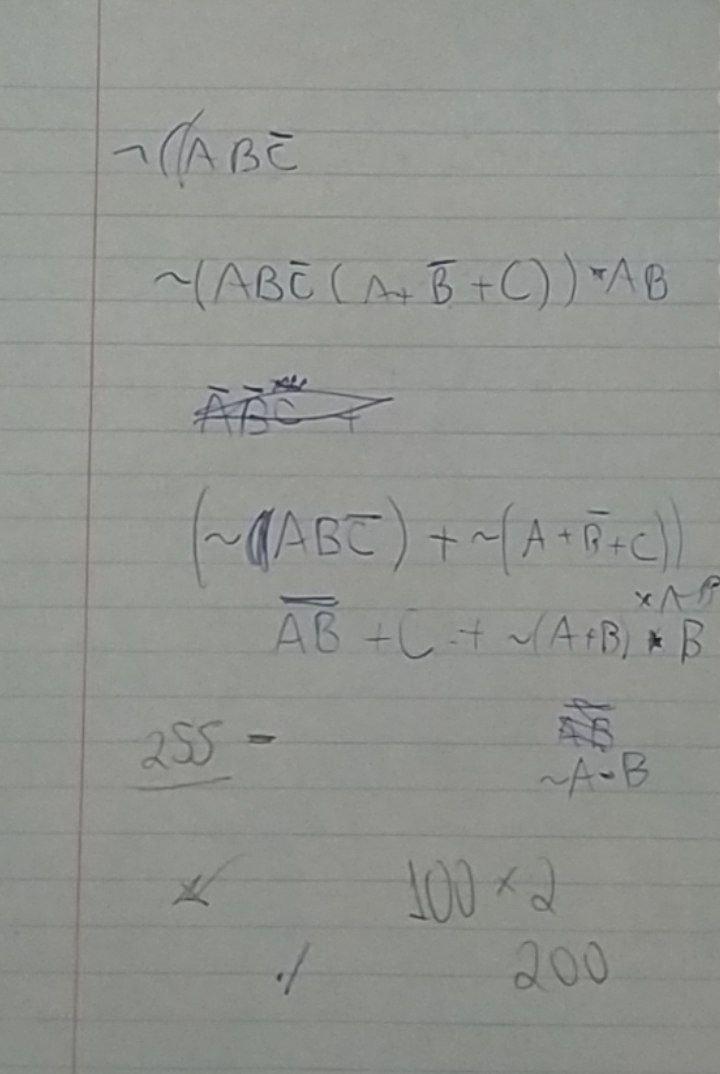 ¬(ABC̅
~(ABC̅(A+B̅+C))*AB
A̅B̅C +
(~(ABC̅)+~(A+B̅+C))
×AB
A̅B̅+C+~(A+B)*B
255 -
~A-B
100×2
200